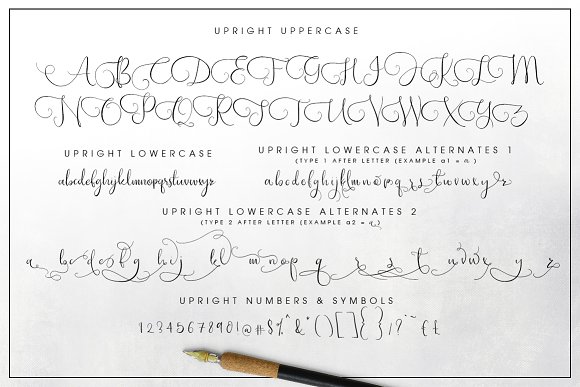 UPRIGHT UPPERCASE
A B C D E F G H I J K L M
N O P Q R S T U V W X Y Z
UPRIGHT LOWERCASE
abcdefghijklmnopqrstuvwxyz
UPRIGHT LOWERCASE ALTERNATES 1
(TYPE 1 AFTER LETTER (EXAMPLE a1 = a )
abcdefghijklmnopqrstuvwxyz
UPRIGHT LOWERCASE ALTERNATES 2
(TYPE 2 AFTER LETTER (EXAMPLE a2 = a )
a b c d e f g h i j k l m n o p q r s t u v w x y z
UPRIGHT NUMBERS & SYMBOLS
1234567890!@#$%^&*()[]{}